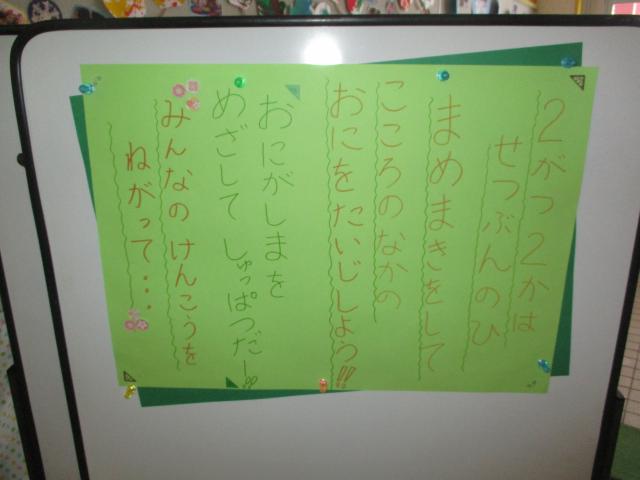 2がつ2かは
せつぶんのひ
まめまきをして
こころのなかの
おにをたいじしよう!!
おにがしまを
めざして しゅっぱつだー!!
みんなの けんこうを
ねがって・・・